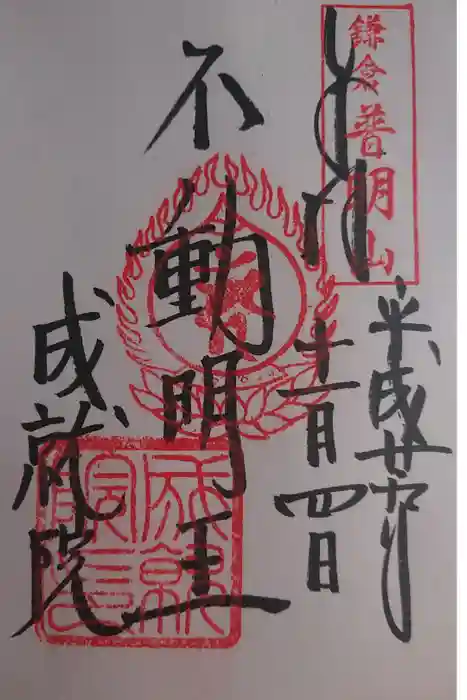 鎌倉普明山
奉拝
平成廿
十一月四日
不動明王
成就院
成就院